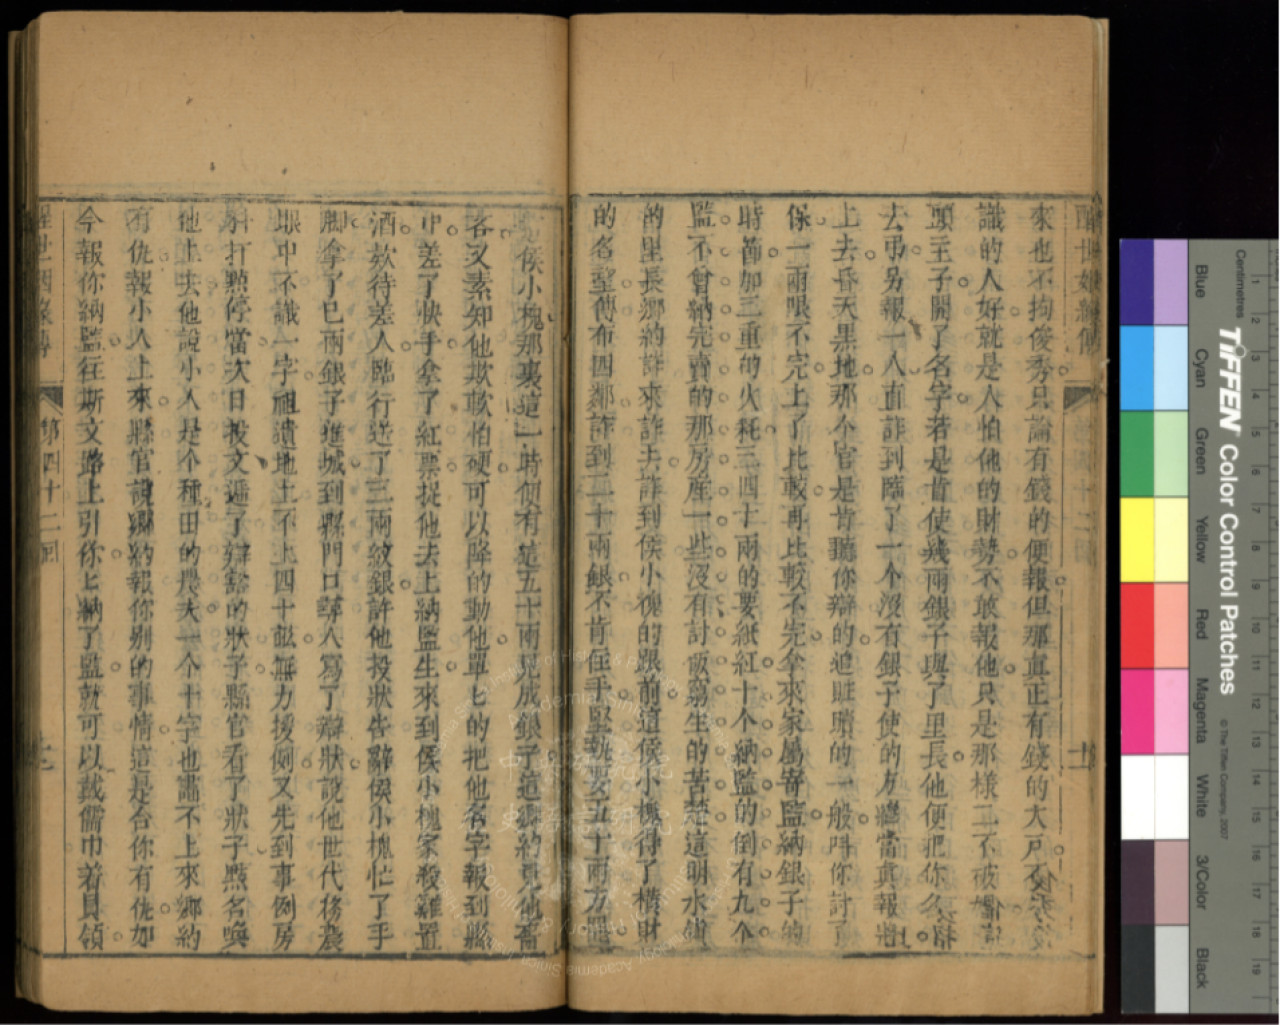 醒世姻緣傳
來也不拘俊秀只論有錢的便報但那真正有錢的大戶不
識的人好就是人怕他的財勢不敢報他只是那樣二不破媽
頭主子開了名字若是肯使幾兩銀子與了里長他便把你名
去弔另報一人直詐到臨了一个沒有銀子使的方纔當真報將
上去昏天黑地那个官是肯聽你辯的追賍贖的一般叫你討
保一兩限不完上了比較再比較不完拿來家屬寄監納銀子的
時節加三重的火耗三四十兩的要紙紅十个納監的倒有九个
監不曾納完賣的那房産一些沒有討飯窮生的苦楚這明水鎮
的里長鄉約詐來詐去詐到侯小槐的跟前這侯小槐得了橫財
的名聲傳布四鄰詐到二十兩銀不肯住手堅執要五十兩方
侯小槐那裏這一時便有這五十兩見成銀子這鄉約見他
客又素知他欺軟怕硬可以降的動他單七的把他名字報到縣
中差了快手拿了紅票捉他去上納監生來到侯小槐家殺雞置
酒欵待差人臨行送了三兩紋銀許他投狀告辭侯小槐忙了手
脚拿了巳兩銀子進城到縣門口尋人寫了辯狀說他世代務農
眼中不識一字祖遺地土不上四十畝無力援例又先到事例房
科打點停當次日投文遞了辯豁的狀子縣官看了狀子點名喚
他上去他說小人是个種田的農夫一个十字也畵不上來鄉約
有仇報小人上來縣官說鄉約報你别的事情這是合你有仇如
今報你納監往斯文路上引你七納了監就可以戴儒巾着員領
醒世姻緣傳
第四十二回